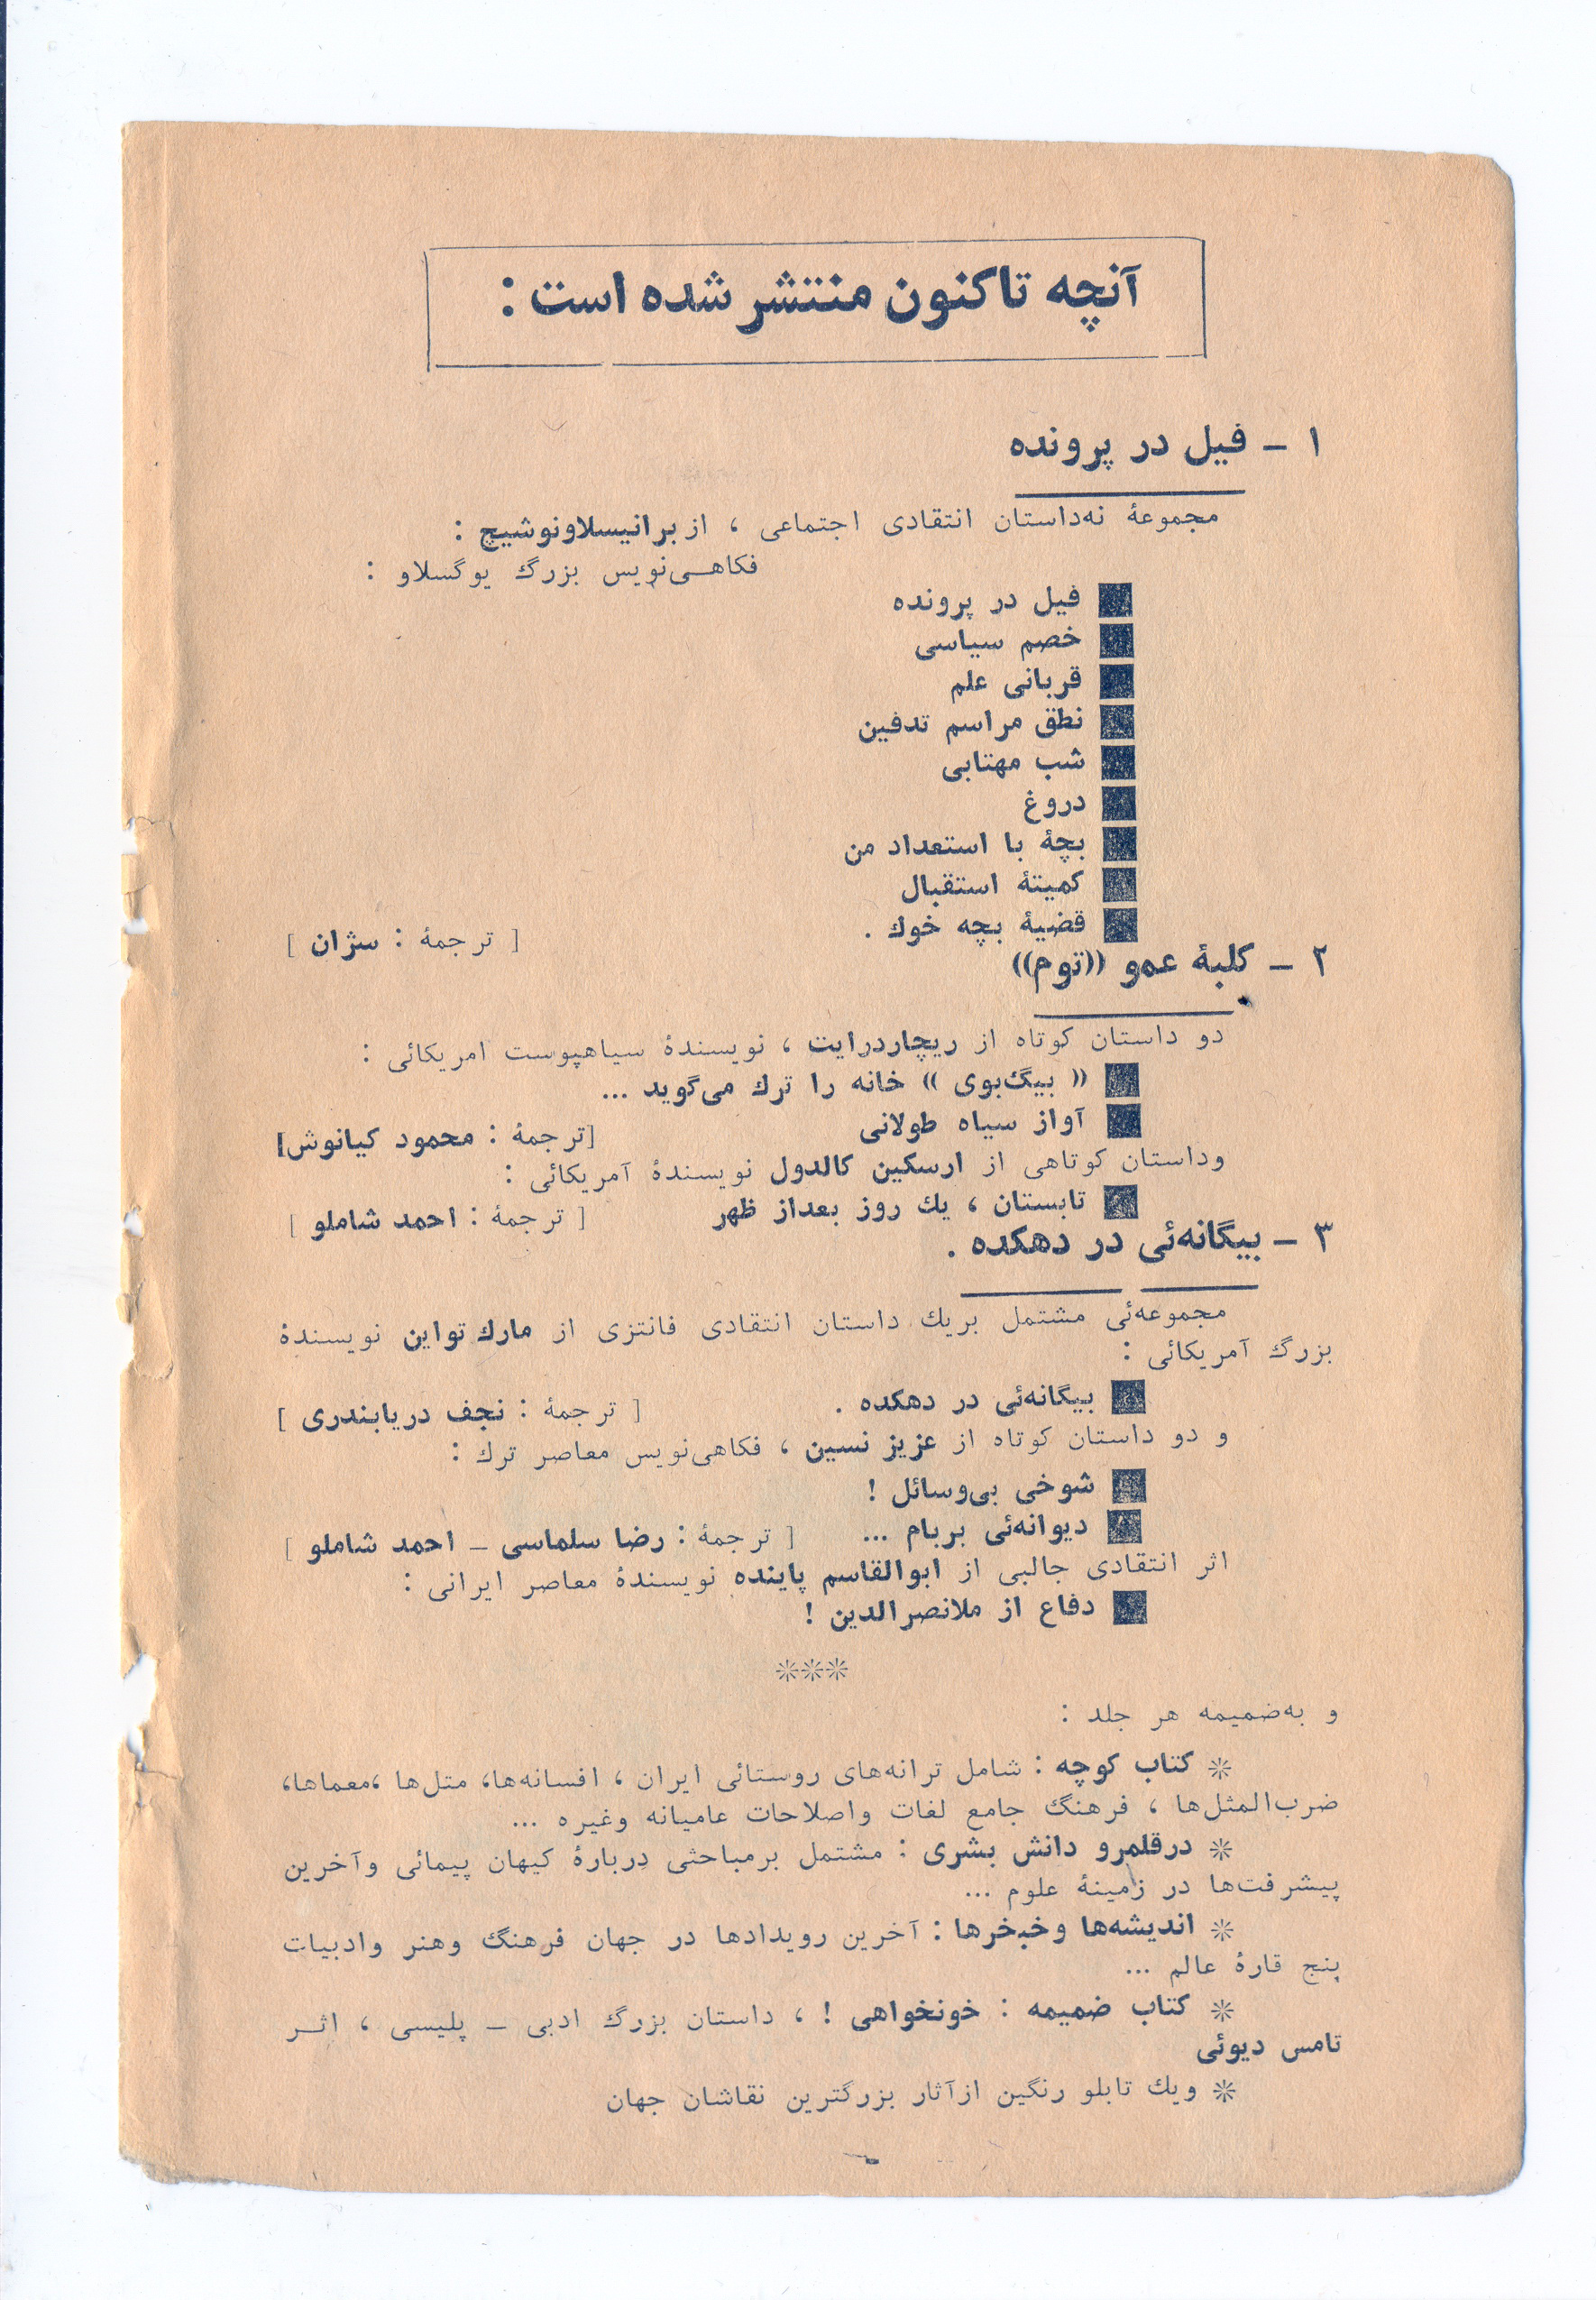 آنچه تاکنون منتشر شده است :
۱ - فیل در پرونده
مجموعهٔ نه‌داستان انتقادی اجتماعی ، از برانیسلاونوشیچ :
فکاهی‌نویس بزرگ یوگسلاو :
■ فیل در پرونده
■ خصم سیاسی
■ قربانی علم
■ نطق مراسم تدفین
■ شب مهتابی
■ دروغ
■ بچهٔ با استعداد من
■ کمیتهٔ استقبال
■ قضیهٔ بچه خوك . [ ترجمهٔ : سژان ]
۲ - کلبهٔ عمو ((توم))
دو داستان کوتاه از ریچاردرایت ، نویسندهٔ سیاهپوست امریکائی :
■ « بیگ‌بوی » خانه را ترك می‌گوید ...
■ آواز سیاه طولانی [ترجمهٔ : محمود کیانوش]
وداستان کوتاهی از ارسکین کالدول نویسندهٔ آمریکائی :
■ تابستان ، یك روز بعداز ظهر [ ترجمهٔ : احمد شاملو ]
۳ - بیگانه‌ئی در دهکده .
مجموعه‌ئی مشتمل بریك داستان انتقادی فانتزی از مارك تواین نویسندهٔ
بزرگ آمریکائی :
■ بیگانه‌ئی در دهکده . [ ترجمهٔ : نجف دریابندری ]
و دو داستان کوتاه از عزیز نسین ، فکاهی‌نویس معاصر ترك :
■ شوخی بی‌وسائل !
■ دیوانه‌ئی بربام ... [ ترجمهٔ : رضا سلماسی - احمد شاملو ]
اثر انتقادی جالبی از ابوالقاسم پاینده نویسندهٔ معاصر ایرانی :
■ دفاع از ملانصرالدین !
***
و به‌ضمیمه هر جلد :
* کتاب کوچه : شامل ترانه‌های روستائی ایران ، افسانه‌ها، متل‌ها ،معماها،
ضرب‌المثل‌ها ، فرهنگ جامع لغات واصلاحات عامیانه وغیره ...
* درقلمرو دانش بشری : مشتمل برمباحثی دربارهٔ کیهان پیمائی وآخرین
پیشرفت‌ها در زمینهٔ علوم ...
* اندیشه‌ها وخبخرها : آخرین رویدادها در جهان فرهنگ وهنر وادبیات
پنج قارهٔ عالم ...
* کتاب ضمیمه : خونخواهی ! ، داستان بزرگ ادبی - پلیسی ، اثر
تامس دیوئی
* ویك تابلو رنگین ازآثار بزرگترین نقاشان جهان